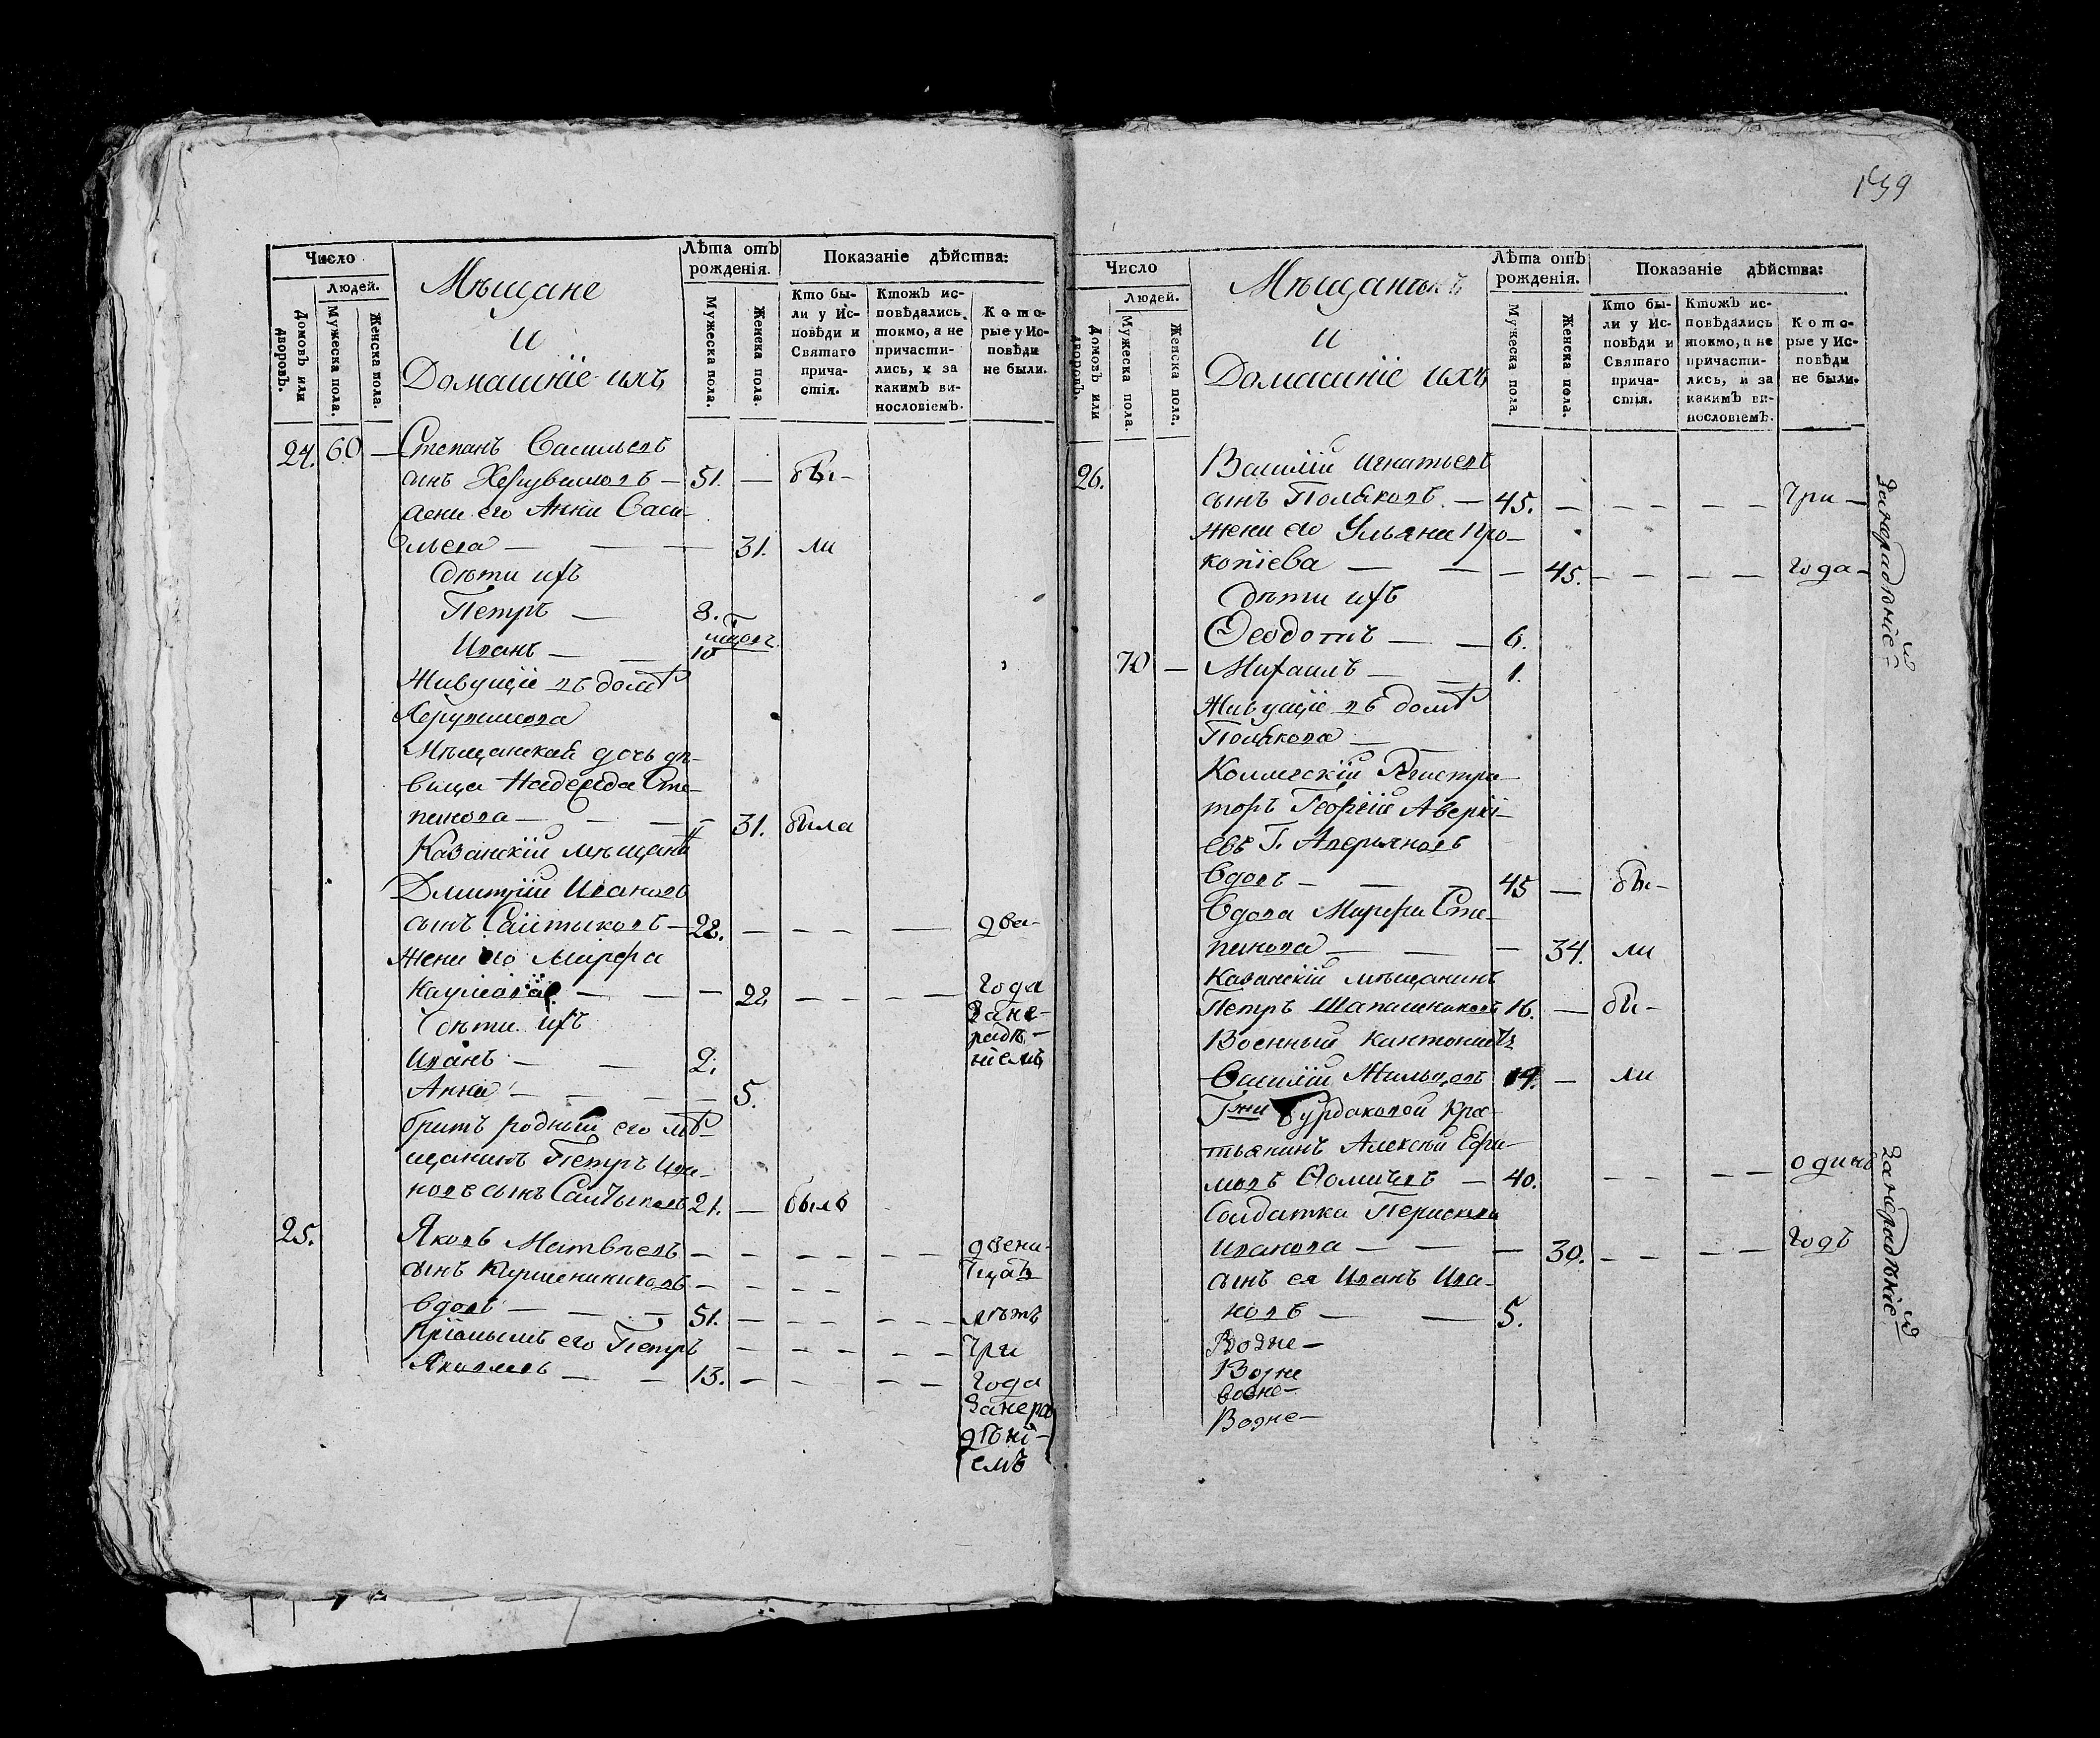 Число
Людей.
Домовъ или дворовъ.
Мужеска пола.
Женска пола.
Мѣщане
и
Домашніе ихъ
Лѣта отъ
рожденія.
Мужеска пола.
Женска пола.
Показаніе дѣйства:
Кто бы-
ли у Ис-
повѣди и
Святаго
прича-
стія.
Ктожъ ис-
повѣдались
токмо, а не
причасти-
лись, и за
какимъ ви-
нословіемъ.
Кото-
рые у Ис-
повѣди
не были.
24. 60 — Степанъ Васильевъ
сынъ Херувимовъ — 51. — бы-
жена его Анна Васи-
льева — — — 31. ли
Дѣти ихъ
Петръ — 8.
Иванъ — — 10
Живущіе въ домѣ
Херувимова
Мѣщанская дочь дѣ-
вица Надежда Сте-
панова — — — 31. была
Казанскій мѣщанинъ
Дмитрій Ивановъ
сынъ Салтыковъ — 22. — — — — два-
жена его Марфа
Наумова — — — 22 — — — — года
Дѣти ихъ
Зане-
радѣ-
ніемъ
Иванъ — — 2.
Анна — — — — 5.
братъ родный его мѣ-
щанинъ Петръ Ива-
новъ сынъ Салтыковъ 21. — былъ
25. Яковъ Матвѣевъ — — — — — — двена-
сынъ — — — — тцать
вдовъ — — — 51. — — — — — лѣтъ
Пріемышъ его Петръ — — — — — три
Яковлевъ — — 13. — — — — года
Занера
дѣні-
емъ
139
Число
Людей.
Домовъ или дворовъ.
Мужеска пола.
Женска пола.
Мѣщанъ
и
Домашніе ихъ
Лѣта отъ
рожденія.
Мужеска пола.
Женска пола.
Показаніе дѣйства:
Кто бы-
ли у Ис-
повѣди и
Святаго
прича-
стія.
Ктожъ ис-
повѣдались
токмо, а не
причасти-
лись, и за
какимъ ви-
нословіемъ.
Кото-
рые у Ис-
повѣди
не были.
26. Василій Игнатьевъ
сынъ Поляковъ — 45. — — — — — три —
жена его Ульяна Про-
копіева — — — 45. — — — — года —
Дѣти ихъ
Ѳеодотъ — — 6.
70 — Михаилъ — — 1.
Занерадѣніемъ
Живущіе въ домѣ
Полякова —
Коллегскій Регистра-
торъ Георгій Аверкі-
евъ Г. Аверьяновъ
Вдовъ — — — 45 — бы-
Вдова Марфа Сте-
панова — — — 34. ли
Казанскій мѣщанинъ
Петръ Шапошниковъ 16. — бы-
Военный кантонистъ
Василій 14. — ли
Гжи Бурдаковой Кре-
стьянинъ Алексѣй Ефи-
мовъ — 40. — — — — одинъ
Солдатка
Иванова — — — 30. — — — — годъ
сынъ ея Иванъ Ива-
новъ — — 5.
Занерадѣніемъ
Возне-
Возне
возне-
Возне-